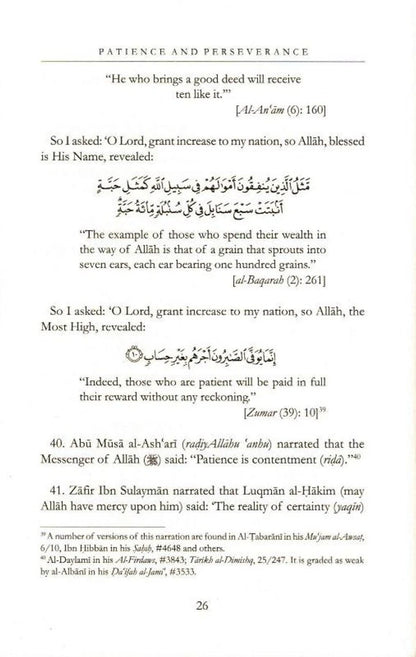 PATIENCE AND PERSEVERANCE
“He who brings a good deed will receive
ten like it.”’
[Al-An‘ām (6): 160]
So I asked: ‘O Lord, grant increase to my nation, so Allāh, blessed
is His Name, revealed:
مَّثَلُ ٱلَّذِينَ يُنفِقُونَ أَمْوَٰلَهُمْ فِى سَبِيلِ ٱللَّهِ كَمَثَلِ حَبَّةٍ
أَنۢبَتَتْ سَبْعَ سَنَابِلَ فِى كُلِّ سُنۢبُلَةٍ مِّا۟ئَةُ حَبَّةٍ
“The example of those who spend their wealth in
the way of Allāh is that of a grain that sprouts into
seven ears, each ear bearing one hundred grains.”
[al-Baqarah (2): 261]
So I asked: ‘O Lord, grant increase to my nation, so Allāh, the
Most High, revealed:
إِنَّمَا يُوَفَّى ٱلصَّٰبِرُونَ أَجْرَهُم بِغَيْرِ حِسَابٍ ١٠
“Indeed, those who are patient will be paid in full
their reward without any reckoning.”
[Zumar (39): 10]39
40. Abū Mūsā al-Ash‘arī (raḍiyAllāhu ‘anhu) narrated that the
Messenger of Allāh (ﷺ) said: “Patience is contentment (riḍā).”40
41. Ẓāfir Ibn Sulaymān narrated that Luqmān al-Ḥākim (may
Allāh have mercy upon him) said: ‘The reality of certainty (yaqīn)
39 A number of versions of this narration are found in Al-Ṭabarānī in his Mu‘jam al-Awsaṭ,
6/10, Ibn Ḥibbān in his Ṣaḥīḥ, #4648 and others.
40 Al-Daylamī in his Al-Firdaws, #3843; Tārīkh al-Dimishq, 25/247. It is graded as weak
by al-Albānī in his Ḍa‘īfah al-Jami‘, #3533.
26